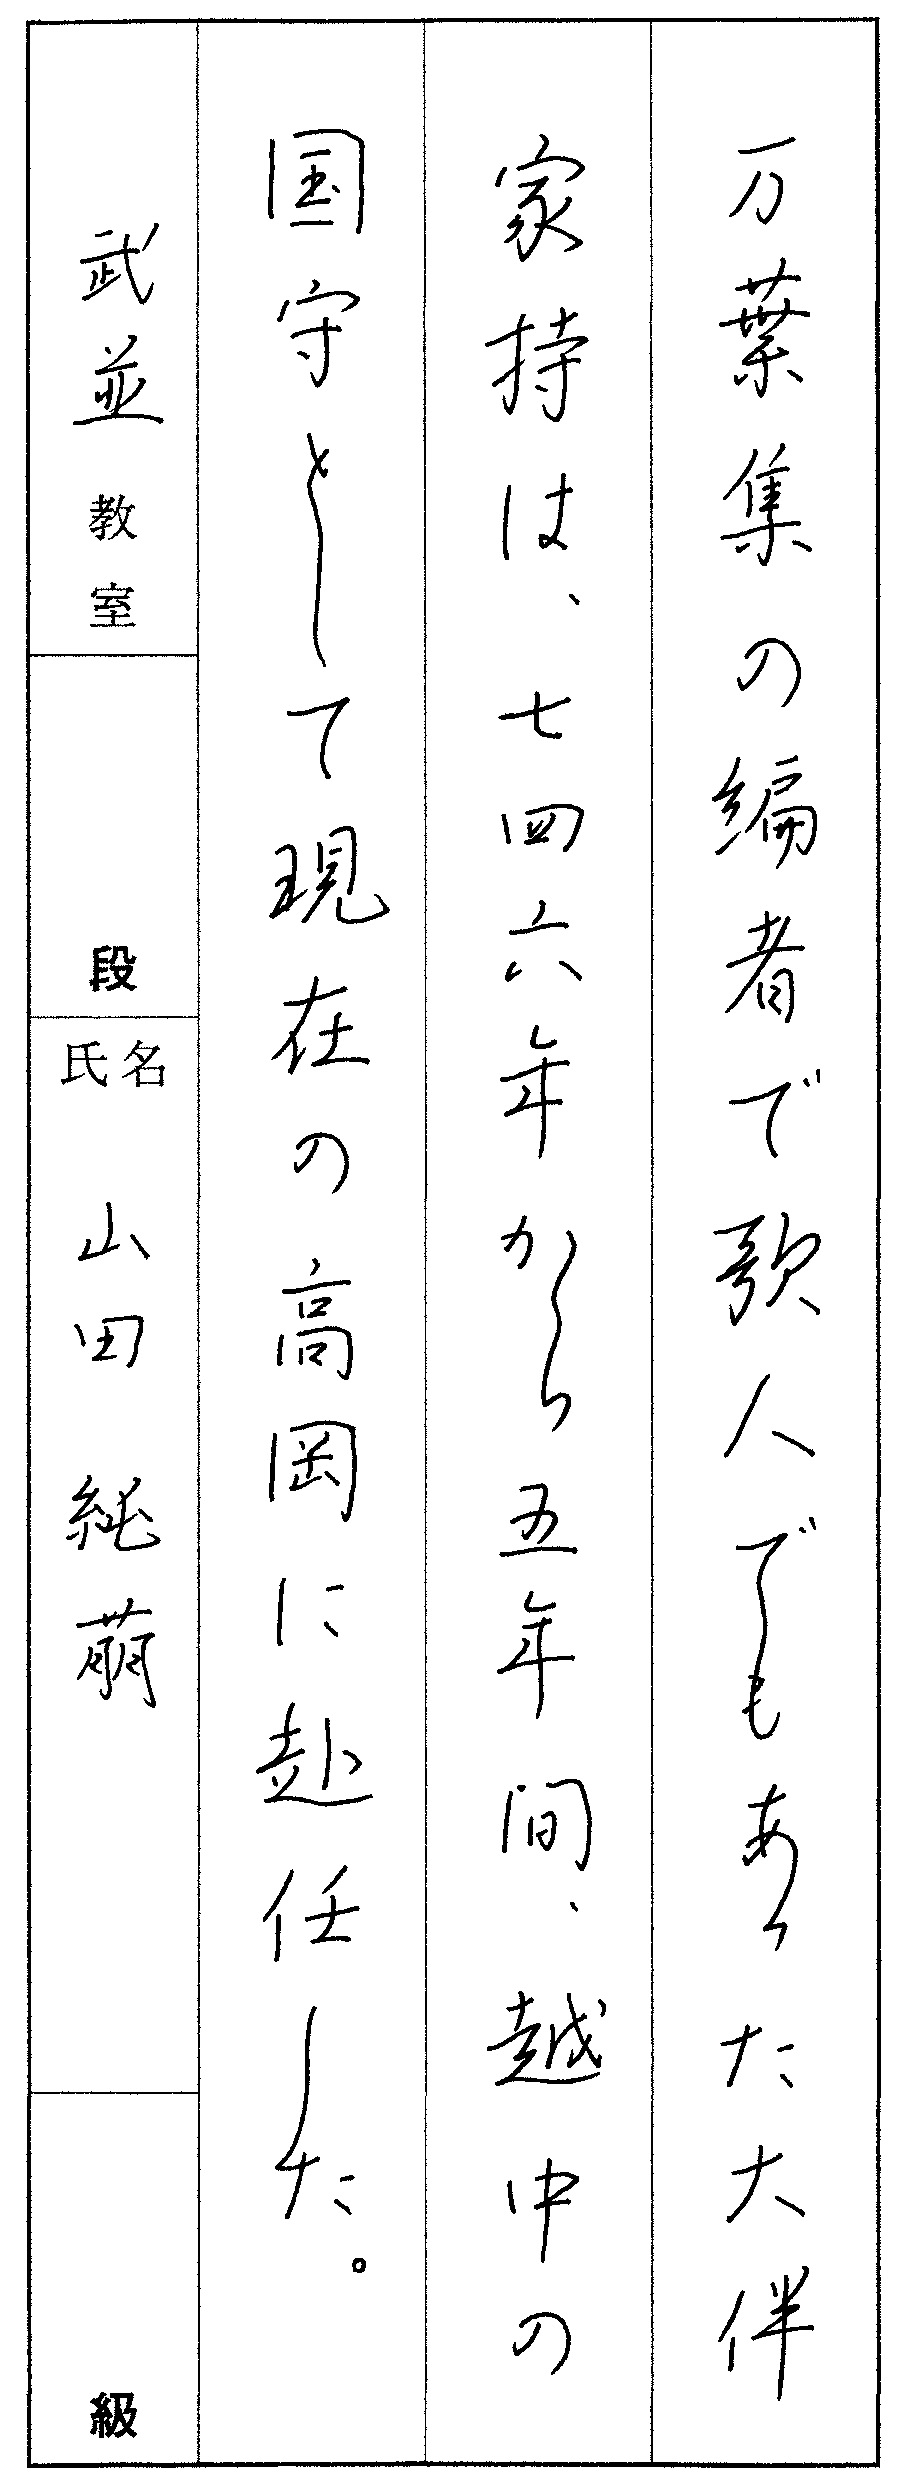 万葉集の編者で歌人でもあった大伴
家持は、七四六年から五年間、越中の
国守として現在の高岡に赴任した。
武並教室
段
氏名 山田純萌
級